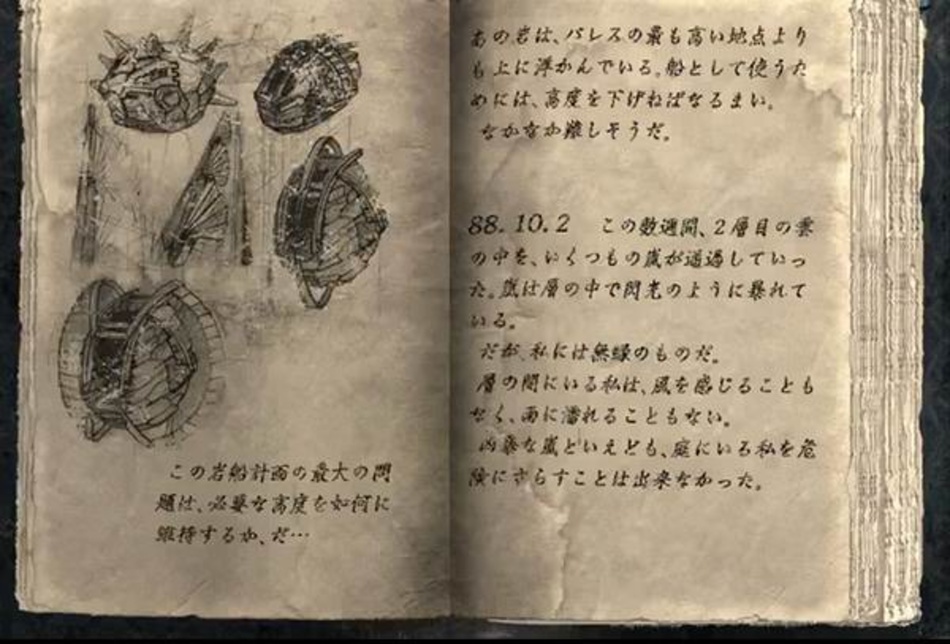 この岩船計画の最大の問
題は、必要な高度を如何に
維持するか、だ…
あの岩は、パレスの最も高い地点より
も上に浮かんでいる。船として使うた
めには、高度を下げねばなるまい。
なかなか難しそうだ。
88.10.2 この数週間、2層目の雲
の中を、いくつもの嵐が通過していっ
た。嵐は層の中で閃光のように暴れて
いる。
だが、私には無縁のものだ。
層の間にいる私は、風を感じることも
なく、雨に濡れることもない。
凶暴な嵐といえども、庭にいる私を危
険にさらすことは出来なかった。